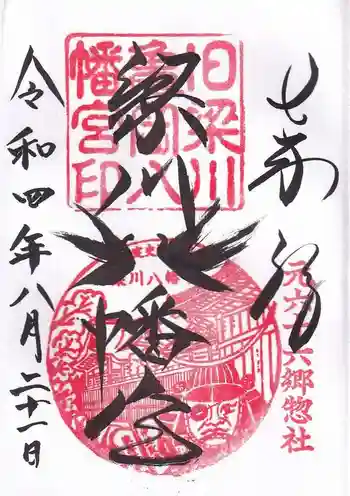 元六十六郷惣社
梁川八幡宮
旧梁川
亀岡八
幡宮印
梁川八幡
令和四年八月二十一日